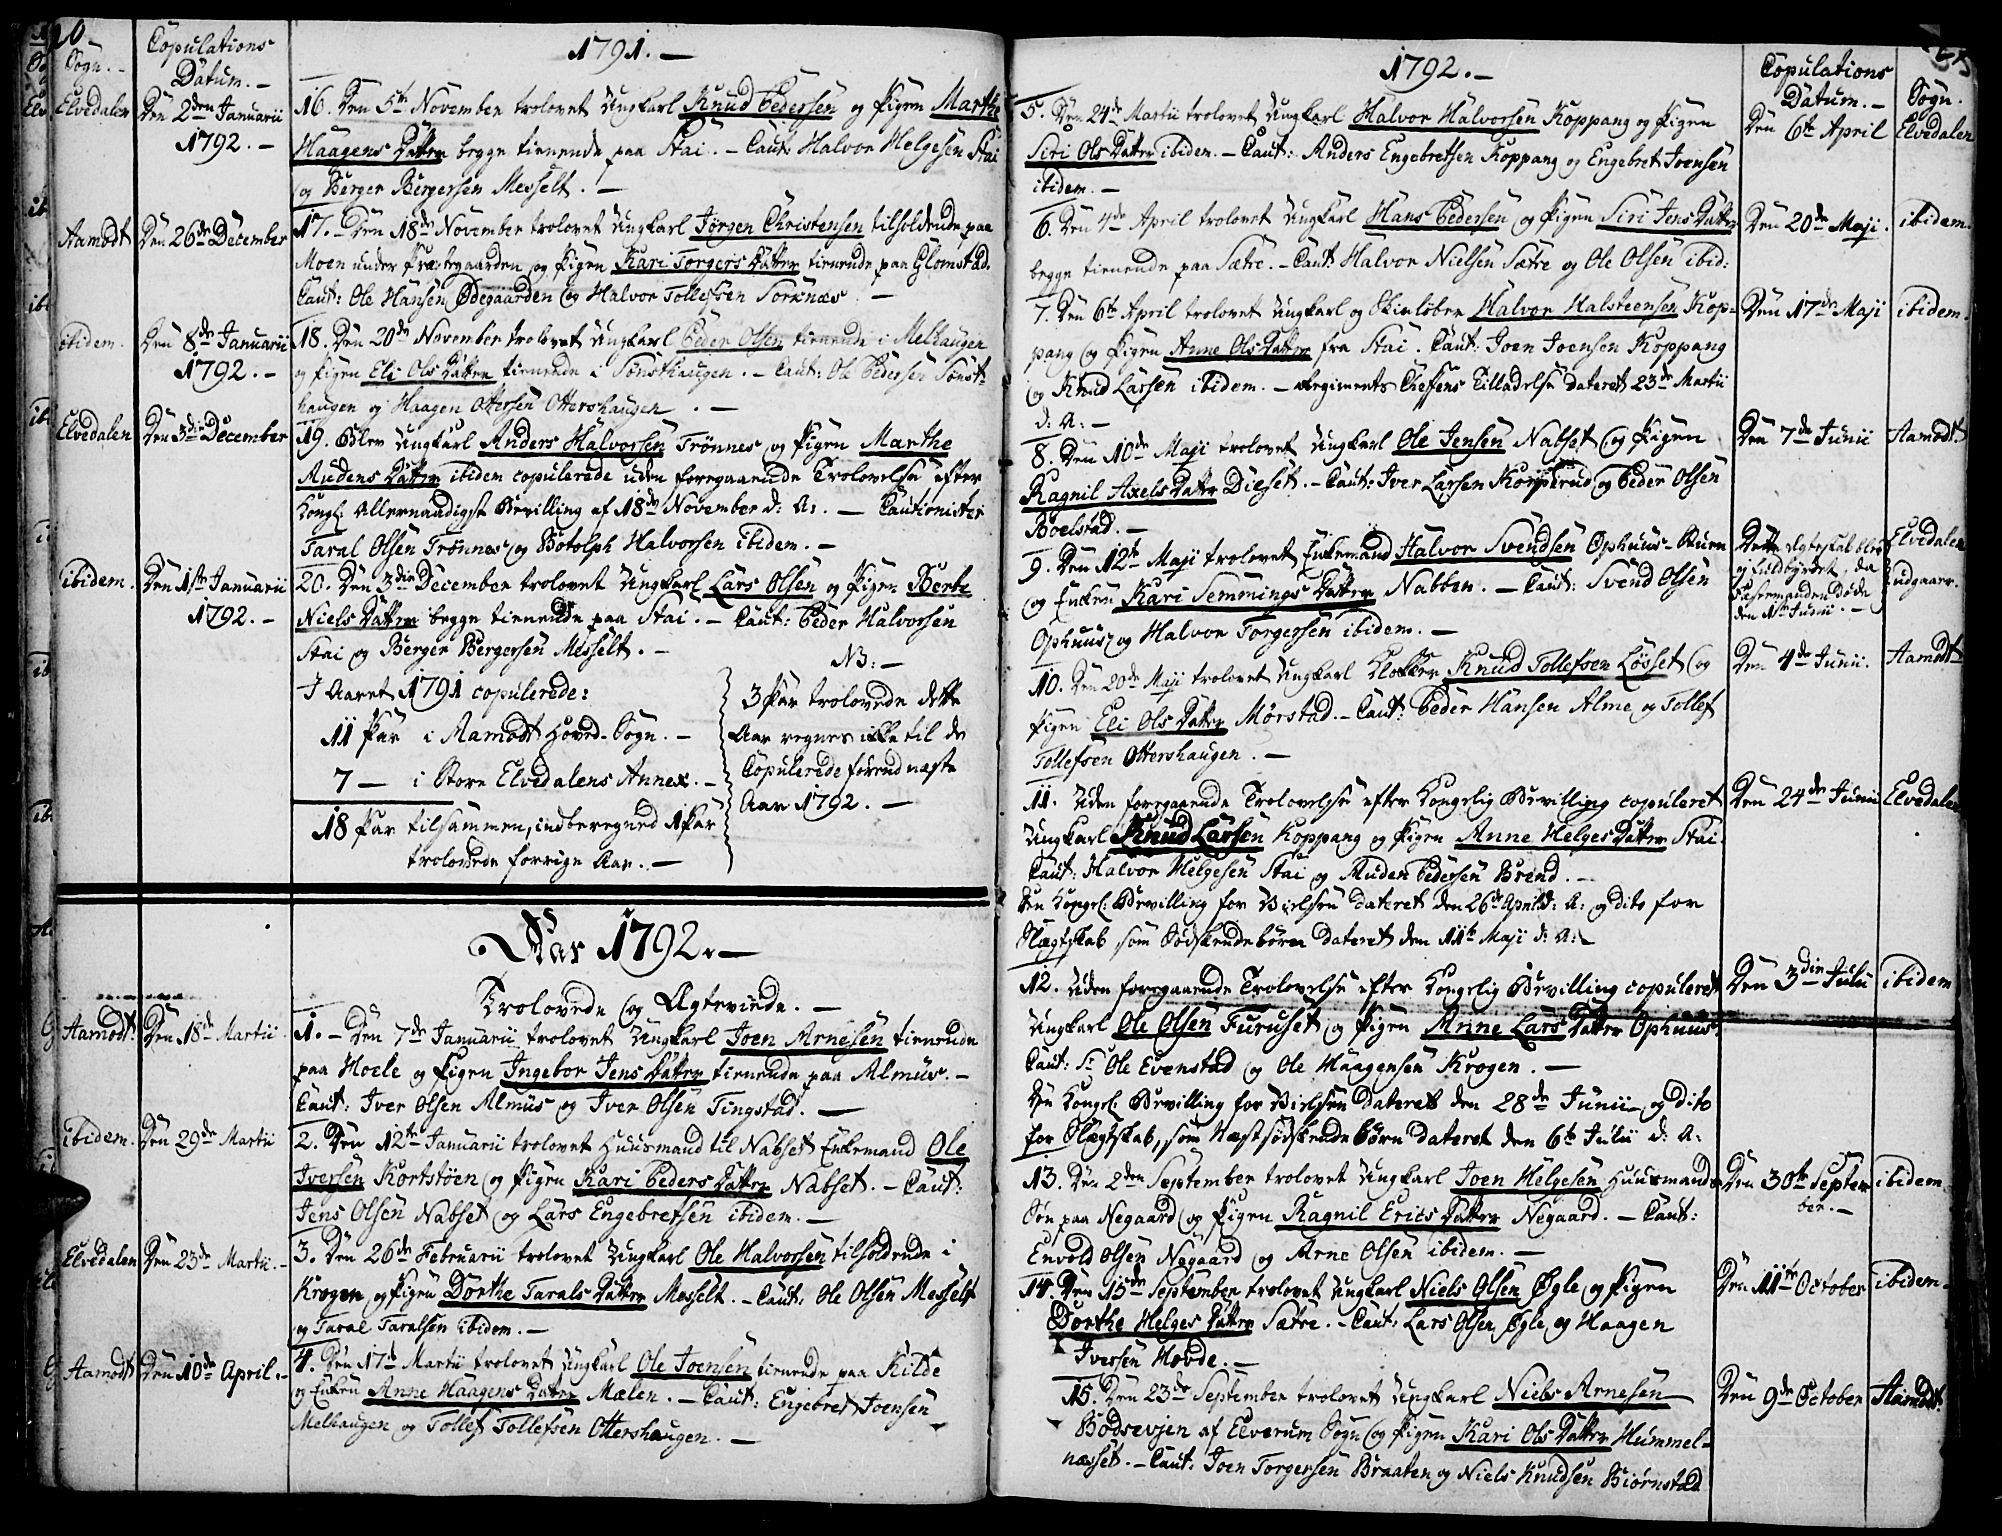 Sogn.
Copulations
Datum. -
1791. -
Elvedalen
Den 2den Januarii
1792. -
16. Den 5te November trolovet Ungkarl Knud Pedersen og Pigen Marthe
Haagens Datter begge tienende paa Stai. - Caut: Halvor Helgesen Stai
og Berger Bergersen Messelt. -
Aamodt
Den 26de December
17. Den 18de November trolovet Ungkarl Jörgen Christensen tilholdende paa
Moen under Præstegaarden og Pigen Kari Torgers Datter tienende paa Glomstad.
Caut: Ole Hansen Ødegaarden og Halvor Tollefsen Sorknæs. -
ibidem.
Den 8de Januarii
1792. -
18. Den 20de November trolovet Ungkarl Peder Olsen tienende i Melhaugen
og Pigen Eli Ols Datter tienende i Sönsthaugen. - Caut: Ole Pedersen Sönst-
haugen og Haagen Ottersen Ottershaugen. -
Elvedalen
Den 3die December
19. Blev Ungkarl Anders Halvorsen Trönnes og Pigen Marthe
Audens Datter ibidem copulerede uden foregaaende Trolovelse efter
Kongl: Allernaadigst Bevilling af 18de November d: A: - Cautionister
Taral Olsen Trönnes og Botolph Halvorsen ibidem. -
ibidem.
Den 1ste Januarii
1792. -
20. Den 3die December trolovet Ungkarl Lars Olsen og Pigen Berte
Niels Datter begge tienende paa Stai. - Caut: Peder Halvorsen
Stai og Berger Bergersen Messelt. -
I Aaret 1791 copulerede:
11 Par i Aamodt Hoved-Sogn. -
7 - i Store Elvedalens Annex. -
18 Par tilsammen, indberegned 1 Par
trolovede forrige Aar. -
NB: -
3 Par trolovede dette
Aar regnes ikke til de
Copulerede förend næste
Aar 1792. -
Aar 1792. -
Trolovede og Ægteviede. -
Aamodt.
Den 18de Martii
1. - Den 7de Januarii trolovet Ungkarl Joen Arnesen tienende
paa Hoele og Pigen Ingebor Jens Datter tienende paa Almus. -
Caut: Iver Olsen Almus og Iver Olsen Tingstad. -
ibidem.
Den 29de Martii
2. Den 12te Januarii trolovet Huusmand til Nabset Enkemand Ole
Iversen Kortstöen og Pigen Kari Peders Datter Nabset. - Caut:
Jens Olsen Nabset og Lars Engebretsen ibidem. -
Elvedalen
Den 23de Martii. -
3. Den 26de Februarii trolovet Ungkarl Ole Halvorsen tilholdende i
Krogen og Pigen Dorthe Tarals Datter Messelt. - Caut: Ole Olsen Messelt
og Taral Taralsen ibidem. -
Aamodt
Den 10de April. -
4. Den 17de Martii trolovet Ungkarl Ole Joensen tienende paa Kilde
og Enken Anne Haagens Datter Mælen. - Caut: Engebret Joensen
Melhaugen og Tollef Tollefsen Ottershaugen. -
1792. -
Copulations
Datum. -
Sogn.
5. Den 24de Martii trolovet Ungkarl Halvor Halvorsen Koppang og Pigen
Siri Ols Datter ibidem. - Caut: Anders Engebretsen Koppang og Engebret Joensen
ibidem. -
Den 6te April
Elvedalen
6. Den 4de April trolovet Ungkarl Hans Pedersen og Pigen Siri Jens Datter
begge tienende paa Sætre. - Caut: Halvor Nielsen Sætre og Ole Olsen ibid:
Den 20de Maji.
ibidem.
7. Den 6te April trolovet Ungkarl og Skielöber Halvor Halsteensen Kop-
pang og Pigen Anne Ols Datter fra Stai. Caut: Joen Joensen Koppang
og Knud Larsen ibidem. - Regiments Chefens Tilladelse dateret 23de Martii
d: A: -
Den 17de Maji
ibidem.
8. Den 10de Maji trolovet Ungkarl Ole Jensen Nabset og Pigen
Ragnil Axels Datter Dieset. - Caut: Iver Larsen Korperud og Peder Olsen
Boelstad. -
Den 7de Junii
Aamodt
9. Den 12te Maji trolovet Enkemand Halvor Svendsen Ophuus-Buen
og Enken Kari Semmings Datter Nabben. - Caut: Svend Olsen
Ophuus og Halvor Torgersen ibidem. -
Dette Ægteskab blev
ej fuldbyrdet, da
Fæstemanden döde
den 1ste Junii. -
Elvedalen
udgaaer.
10. Den 20de Maji trolovet Ungkarl Klokker Knud Tollefsen Lösset og
Pigen Eli Ols Datter Mörstad. - Caut: Peder Hansen Alme og Tollef
Tollefsen Ottershaugen. -
Den 4de Junii.
Aamodt
11. Uden foregaaende Trolovelse efter Kongelig Bevilling copuleret
Ungkarl Knud Larsen Koppang og Pigen Anne Helges Datter Stai.
Caut: Halvor Helgesen Stai og Auden Pedersen Brend. -
Den Kongel: Bevilling for Vielsen dateret den 26de April d: A: og dito for
Slægtskab som Södskendebörn dateret den 11te Maji d: A: -
Den 24de Junii
Elvedalen
12. Uden foregaaende Trolovelse efter Kongelig Bevilling copuleret
Ungkarl Ole Olsen Furuset og Pigen Anne Lars Datter Ophuus.
Caut: Sr Ole Evenstad og Ole Haagensen Krogen. -
Den Kongel: Bevilling for Vielsen dateret den 28de Junii og dito
for Slægtskab, som Næstsödskendebörn dateret den 6te Julii d: A:
Den 3die Julii
ibidem
13. Den 2den September trolovet Ungkarl Joen Helgesen Huusmands
Sön paa Negaard og Pigen Ragnil Erics Datter Negaard. - Caut:
Envold Olsen Negaard og Arne Olsen ibidem. -
Den 30te Septem
ber. -
ibidem.
14. Den 15de September trolovet Ungkarl Niels Olsen Øgle og Pigen
Dorthe Helges Datter Sætre. - Caut: Lars Olsen Øgle og Haagen
Iversen Hovde. -
Den 11te October
ibidem.
15. Den 23de September trolovet Ungkarl Niels Arnesen
Bodsevjen af Elverum Sogn og Pigen Kari Ols Datter Hummel-
næsset. - Caut: Joen Torgersen Braaten og Niels Knudsen Biörnstad
Den 9de October
Aamodt.